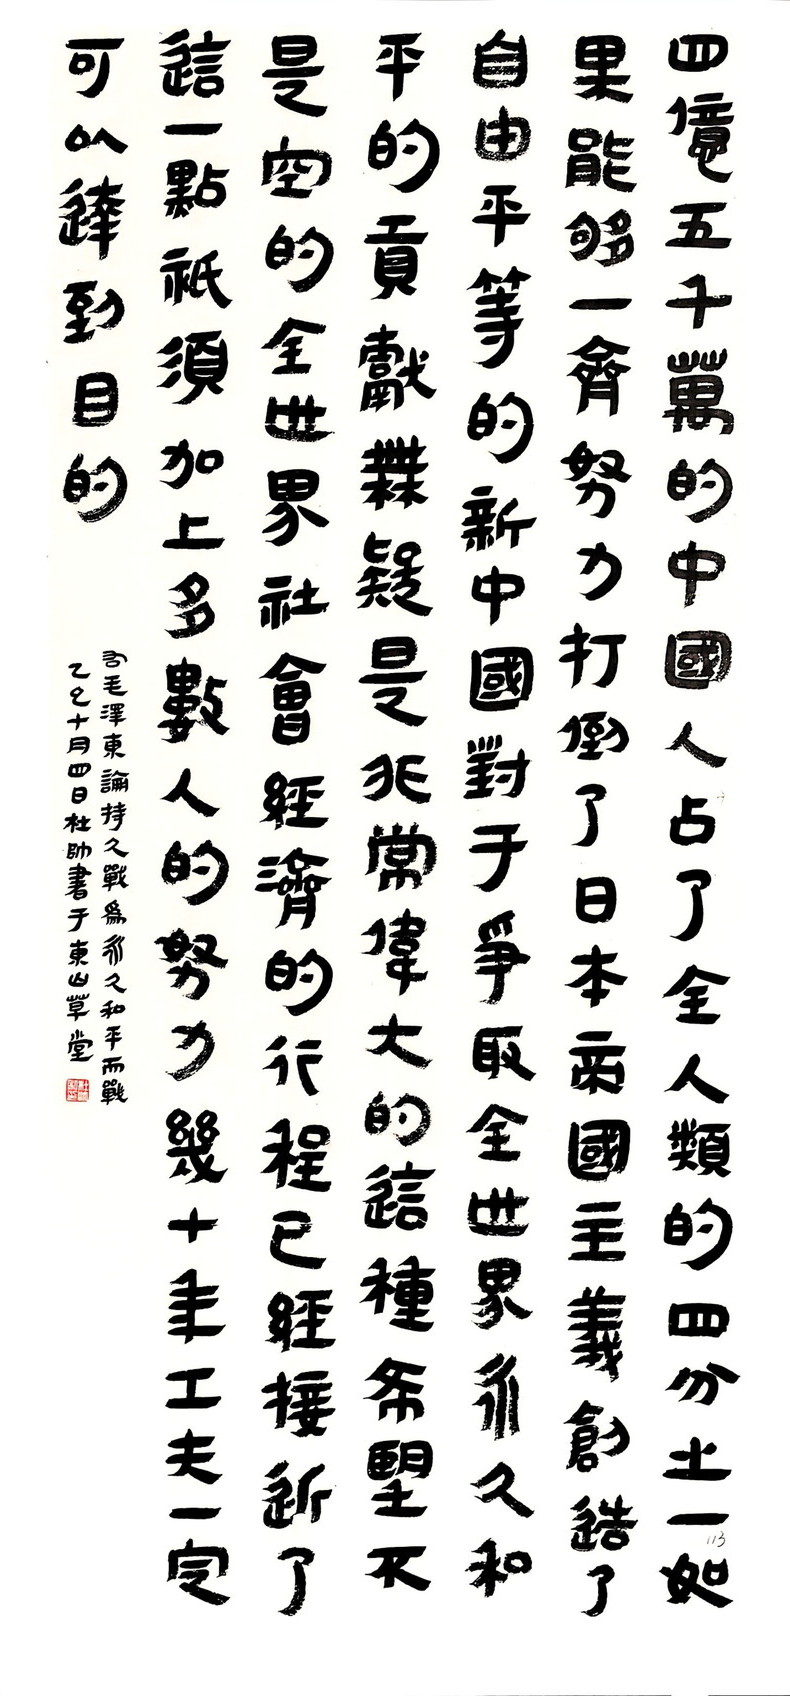 四億五千萬的中國人占了全人類的四分之一如
果能够一齊努力打倒了日本帝國主義創造了
自由平等的新中國對于爭取全世界永久和
平的貢獻無疑是非常偉大的這種希望不
是空的全世界社會經濟的行程已經接近了
這一點祇須加上多數人的努力幾十年工夫一定
可以達到目的
毛澤東論持久戰爲永久和平而戰
乙巳十月四日杜帥書于東山草堂
113